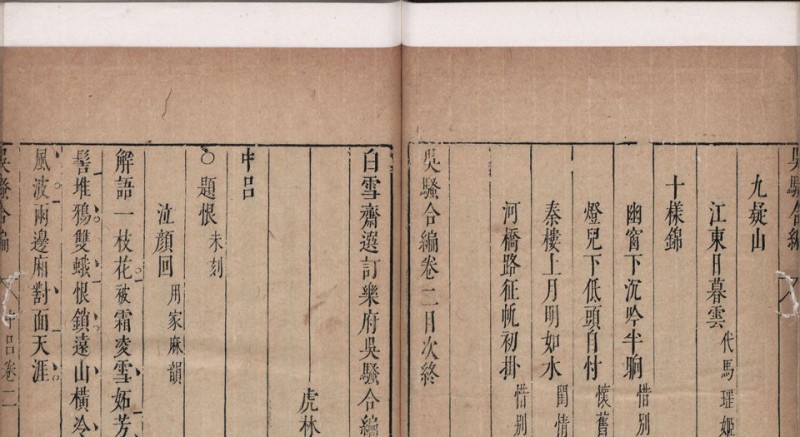 吳騷合編
九疑山
江東日暮雲 代馬瑾姬
十樣錦
幽窗下沉吟半晌 惜別
燈兒下低頭自忖 懷舊
秦樓上月明如水 閨情
河橋路征帆初掛 惜別
吳騷合編卷二目次終
白雪齋選訂樂府吳騷合編
虎林
中呂
○題恨 未刻
泣顏回 用家麻韻
解語一枝花被霜凌雪妬芳
髻堆鴉雙蛾恨鎖遠山橫冷
風波兩邊廂對面天涯
吳騷合編 中呂 卷二